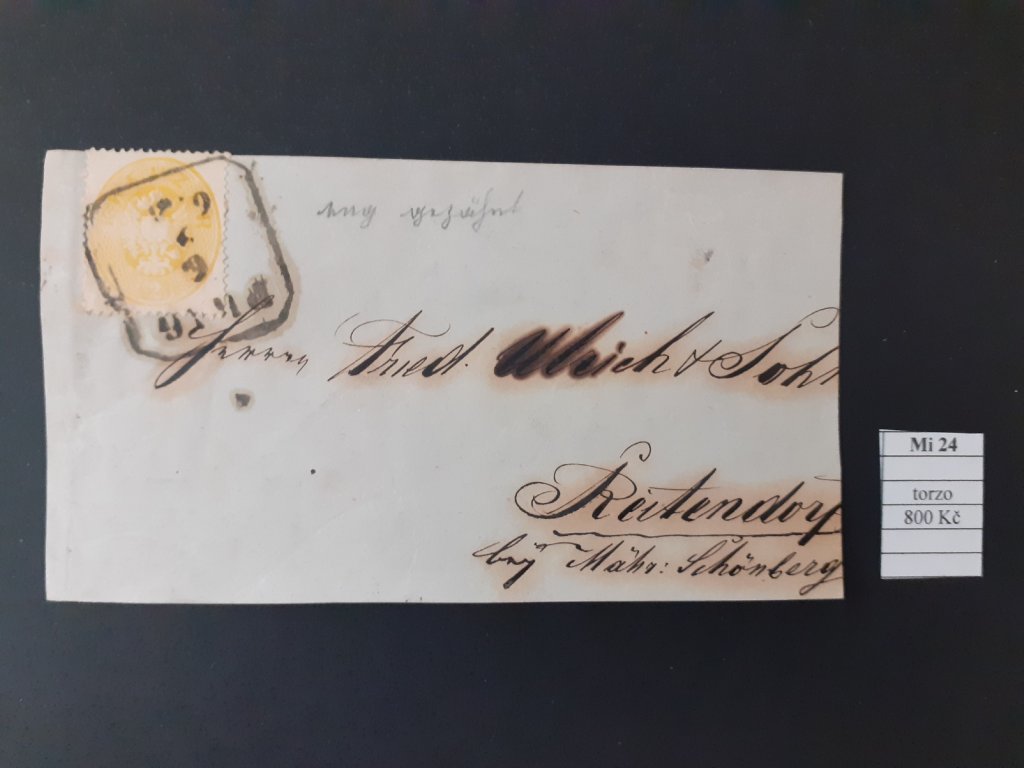 eng gezähnt
Herren Fried. Ulrich & Sohn
Reitendorf
bey Mähr: Schönberg
Mi 24
torzo
800 Kč